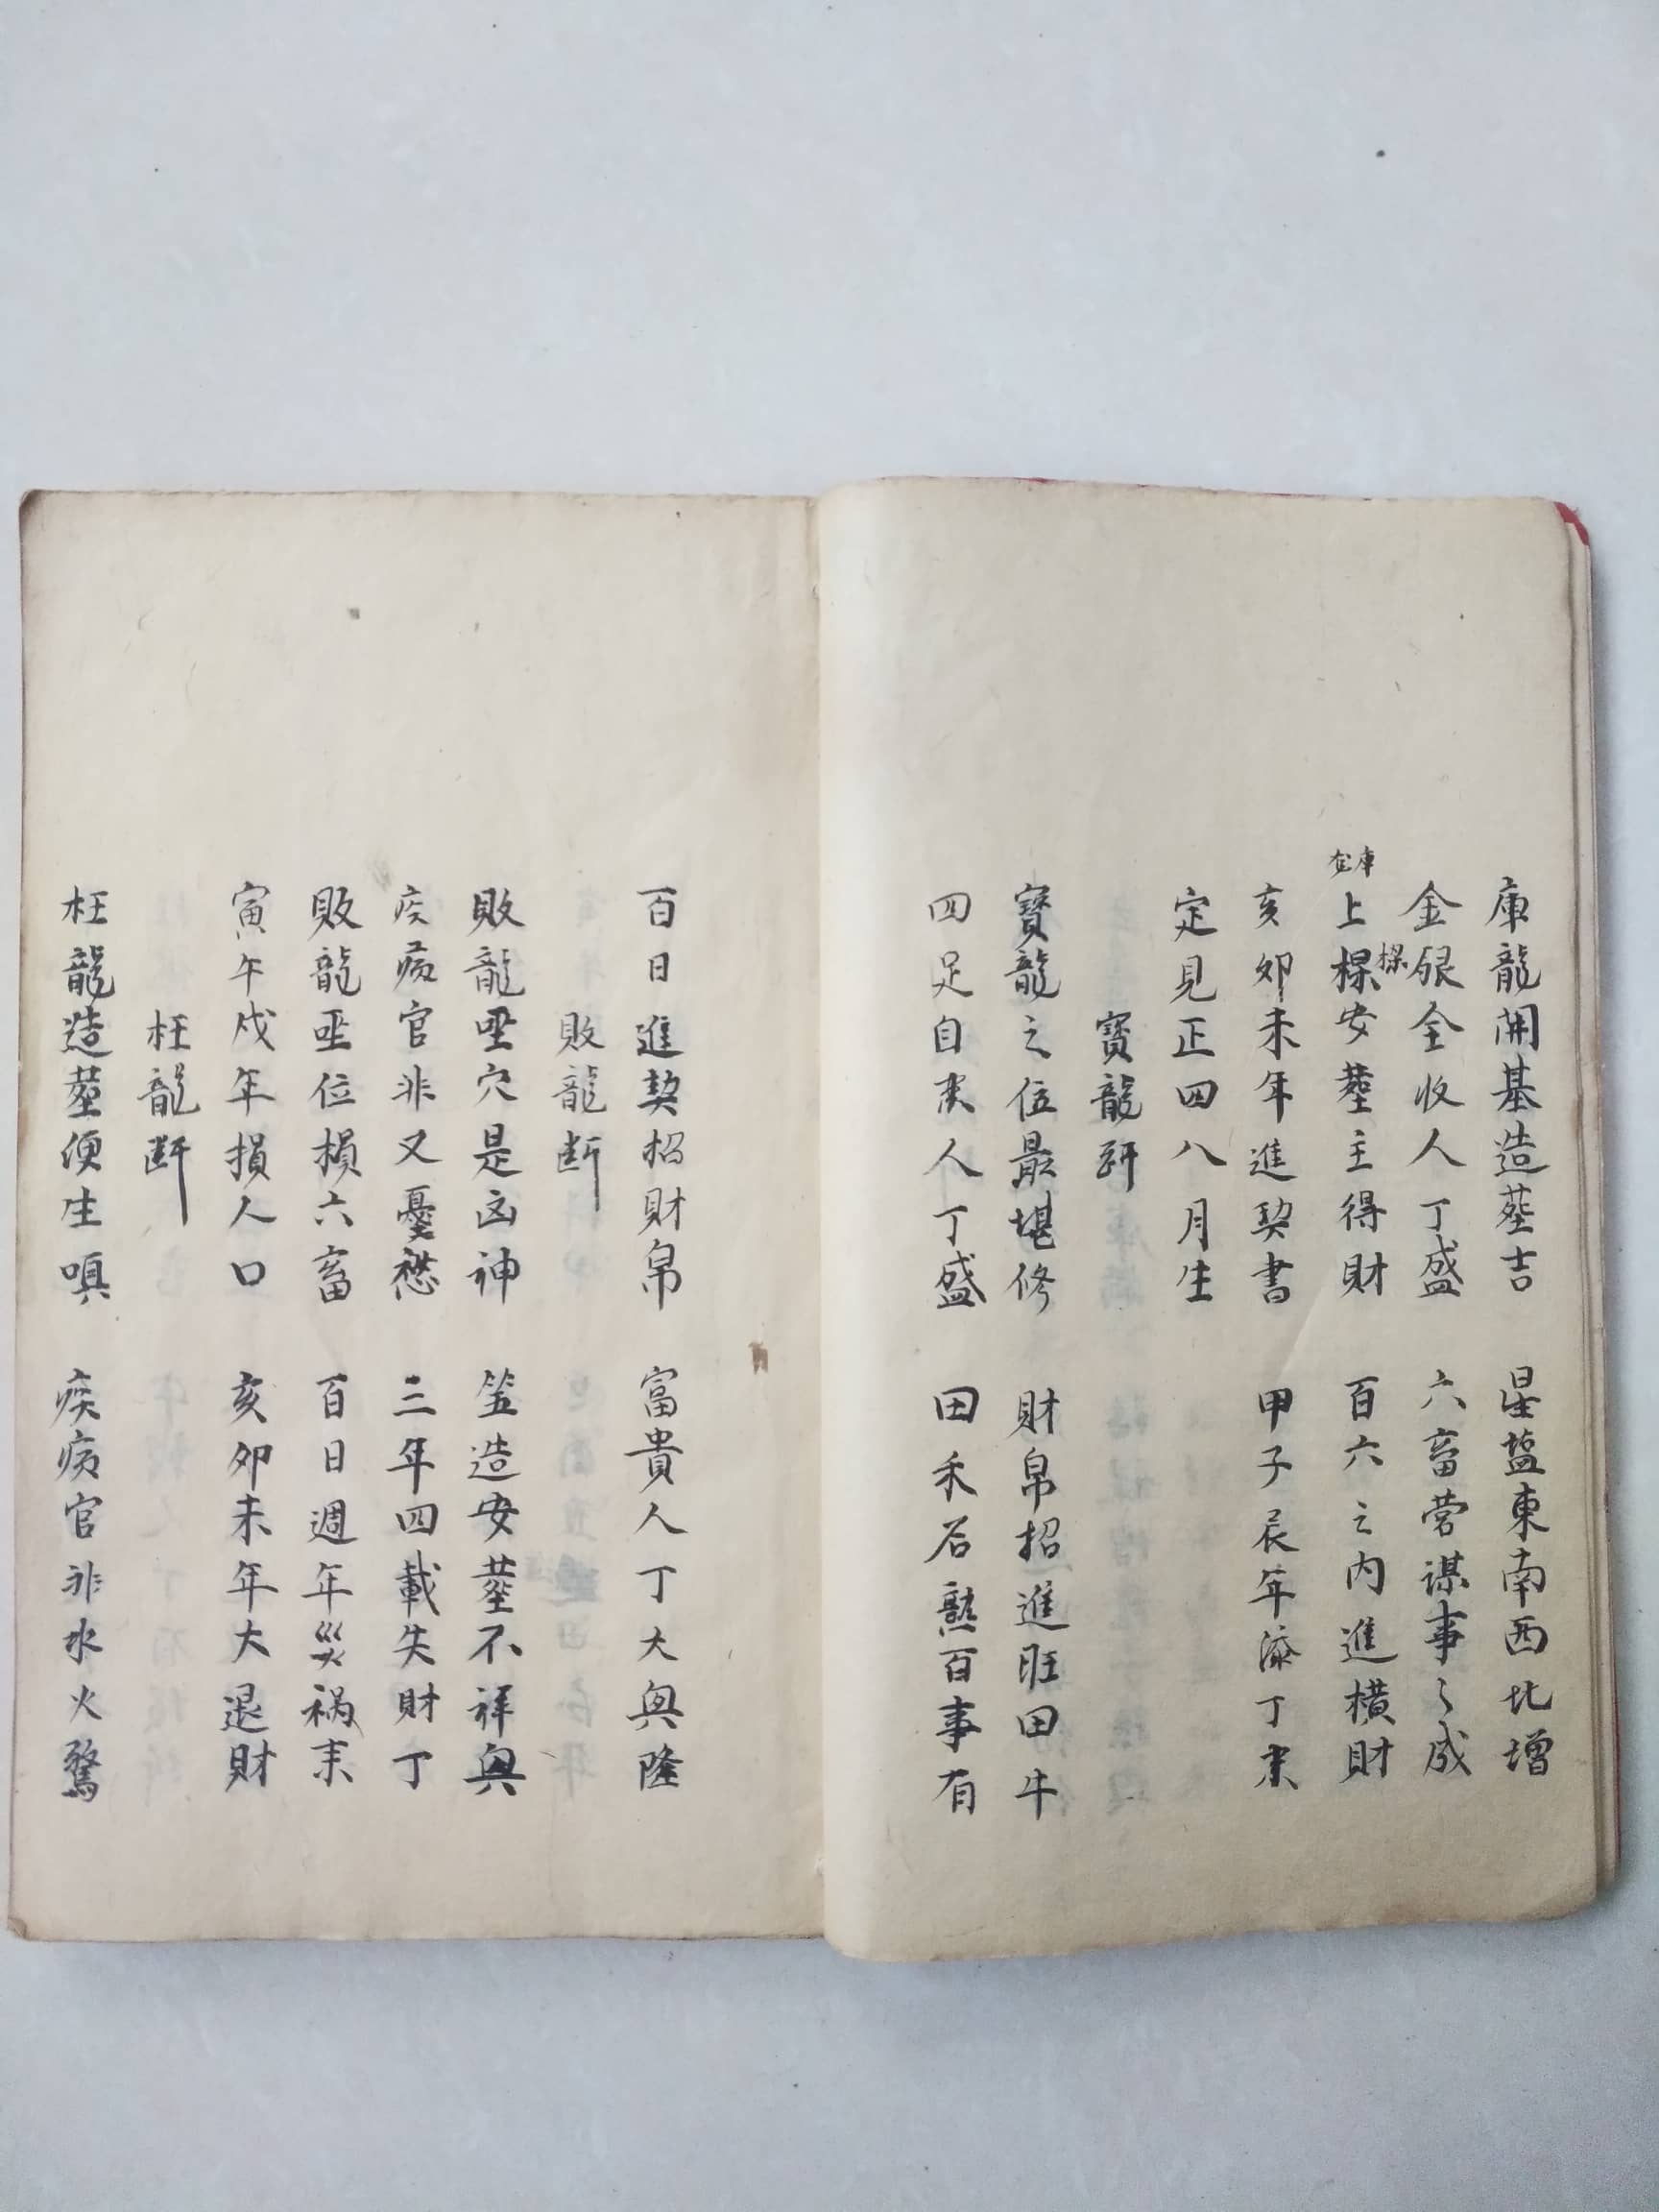 庫龍開基造葬吉　星塩東南西北增
金銀全收人丁盛　六畜营谋事々成
上樑安葬主得財　百六之内進横財
庫
樑
亥卯未年進契書　甲子辰年添丁来
定見正四八月生
寳龍断
寳龍之位最堪修　財帛招進旺田牛
四足自来人丁盛　田禾石熟百事有
百日進契招財帛　富貴人丁大興隆
敗龍断
敗龍坐穴是凶神　竖造安葬不祥興
疾病官非又憂愁　三年四載失財丁
敗龍坐位損六畜　百日週年災祸来
寅午戌年損人口　亥卯未年大退財
枉龍断
枉龍造葬便生嗔　疾病官非水火驚